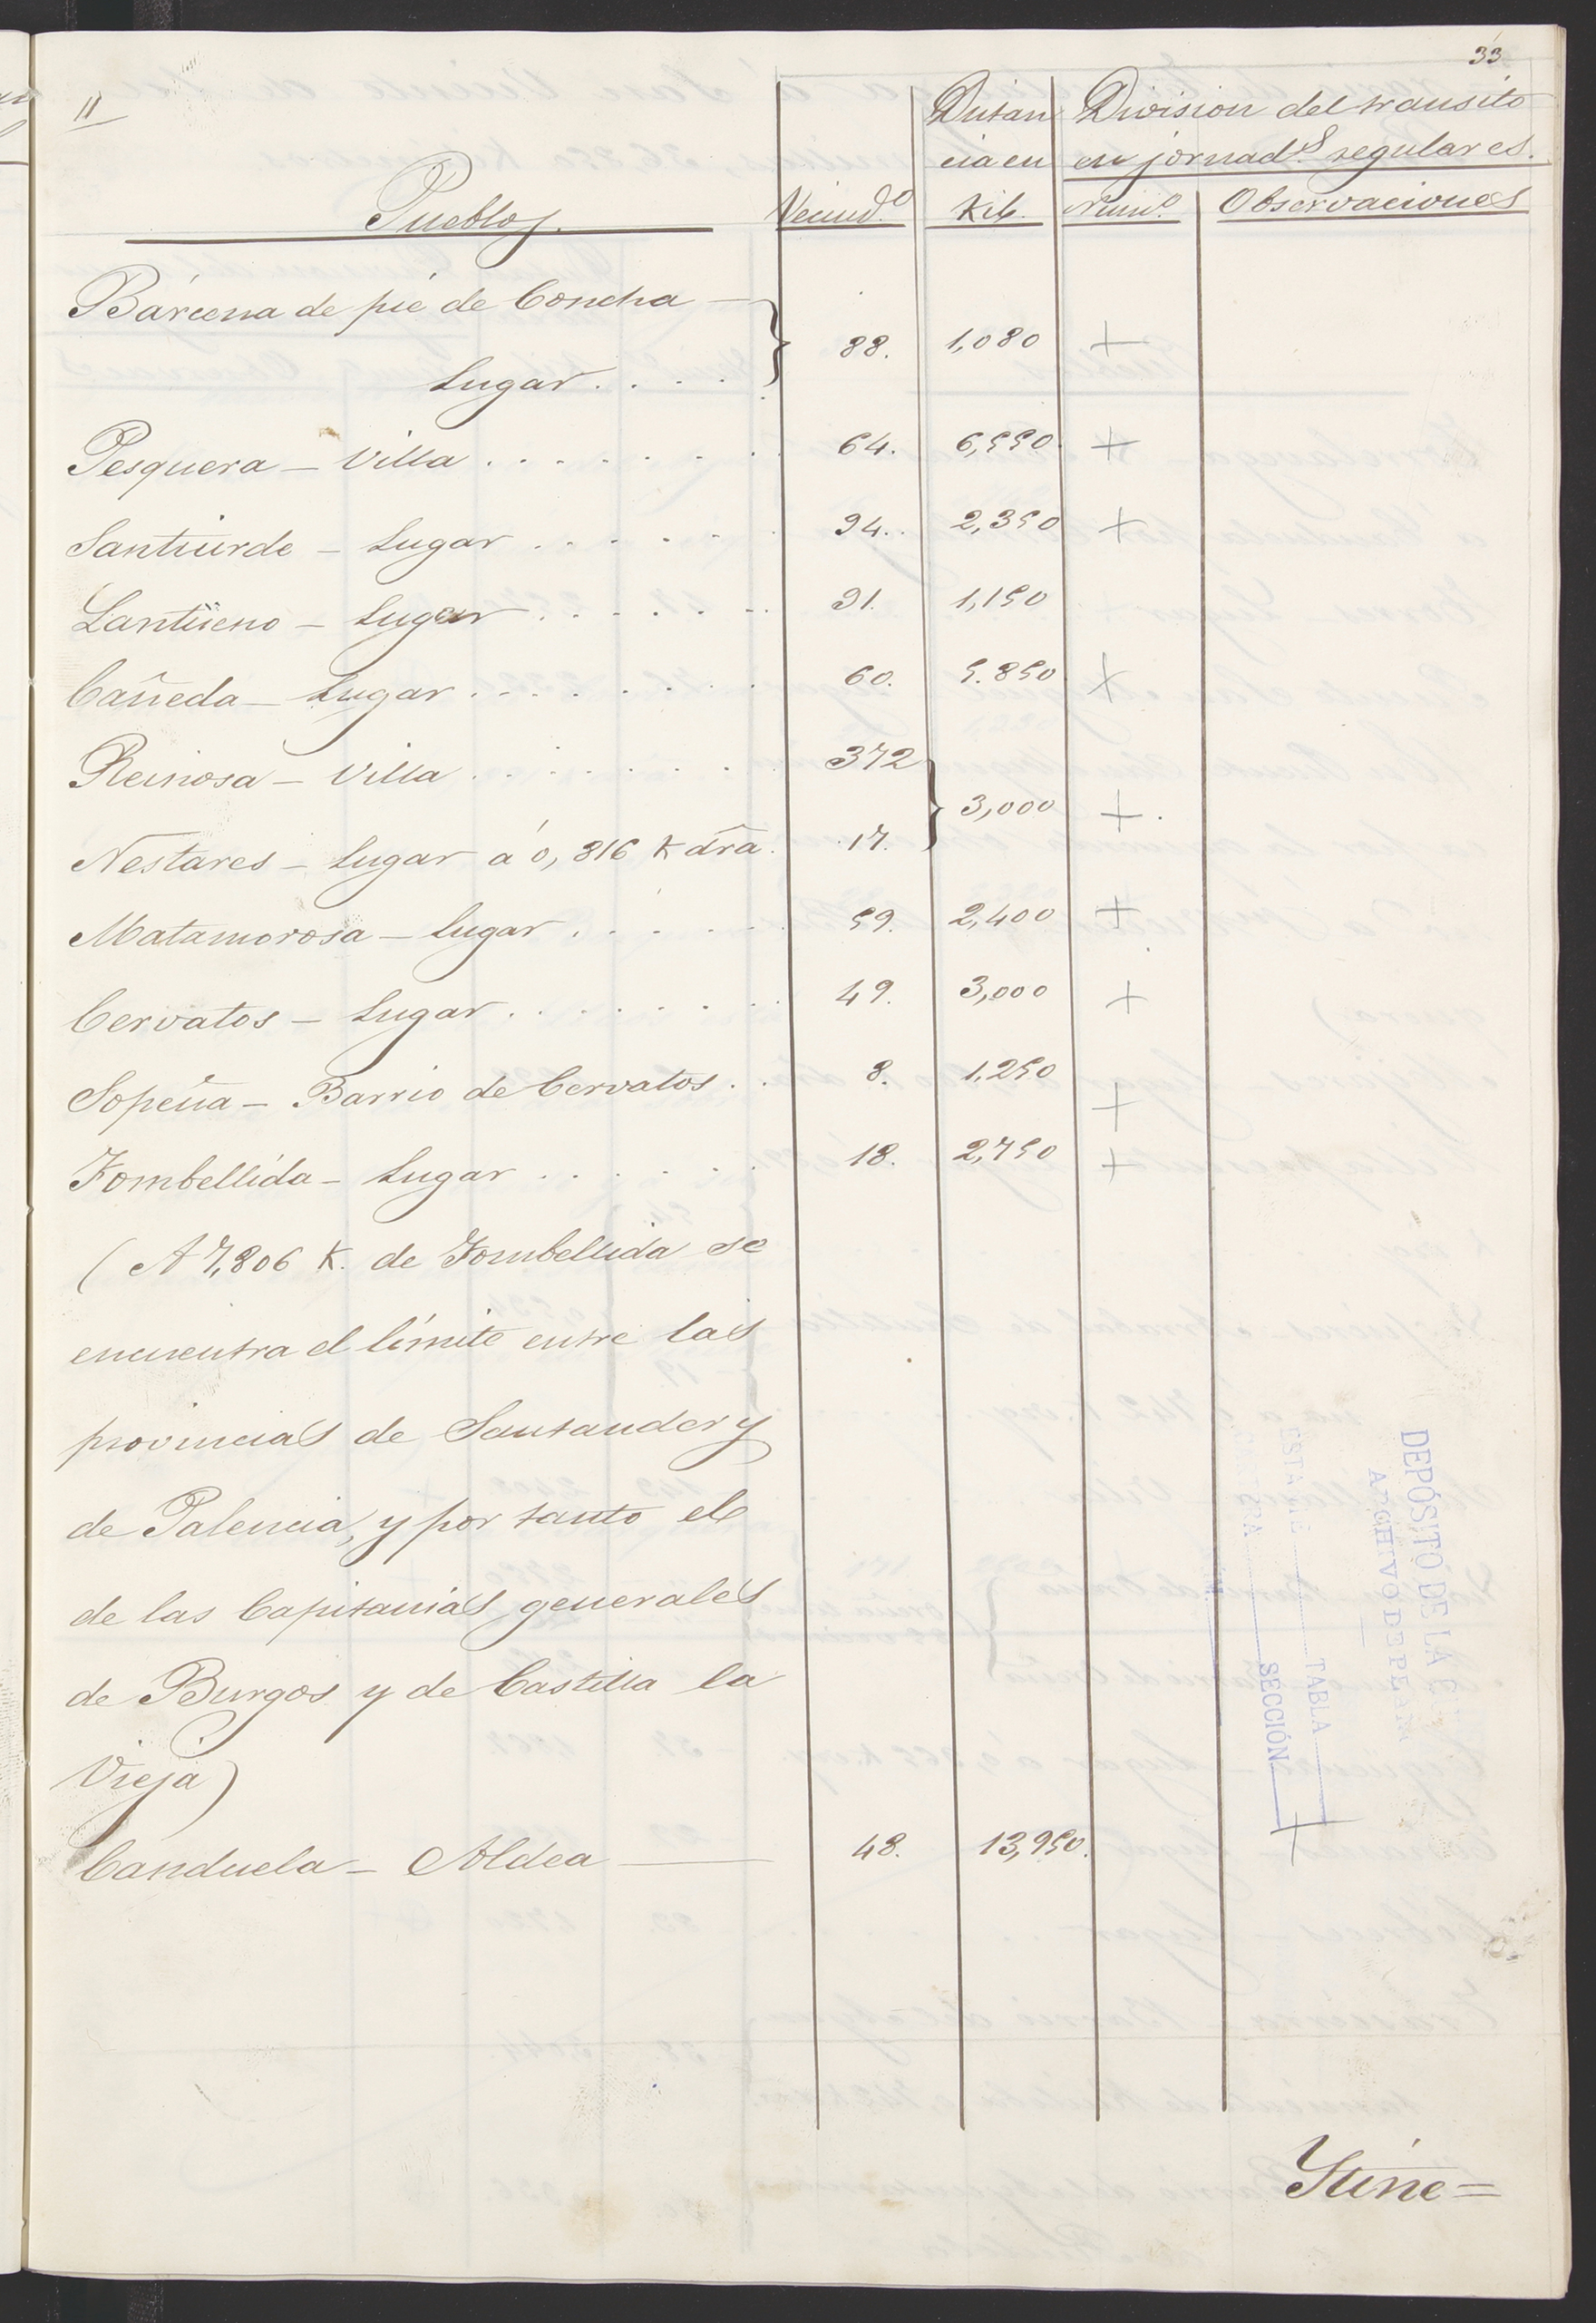 33
11
Distan
cia en
Kil.
Division del transito
en jornad.s regulares.
Pueblos.
Vecind.o
Num.o
Observaciones
Bárcena de pié de Concha —
Lugar . . . . 88. 1,080 +
Pesquera — Villa . . . . . . . 64. 6,550 +
Santiurde — Lugar . . . . . . 94. 2,350 +
Lantüeno — Lugar . . . . . . 91. 1,150
Cañeda — Lugar . . . . . . . 60. 5.850 +
Reinosa — Villa . . . . . . . 372
3,000 +
Nestares — Lugar á 0,816 K dr̃a. 17.
Matamorosa — Lugar . . . . . . 59. 2,400 +
Cervatos — Lugar . . . . . . . 49. 3,000 +
Sopeña — Barrio de Cervatos . . 8. 1,250 +
Fombellida — Lugar . . . . . . 18. 2,750 +
( A 7,806 K. de Fombellida se
encuentra el límite entre las
provincias de Santander y
de Palencia, y por tanto el
de las Capitanías generales
de Burgos y de Castilla la
Vieja )
Canduela — Aldea — 48. 13,950.
DEPÓSITO DE LA
ARCHIVO DE
ESTANTE TABLA
SECCIÓN
Ytine=